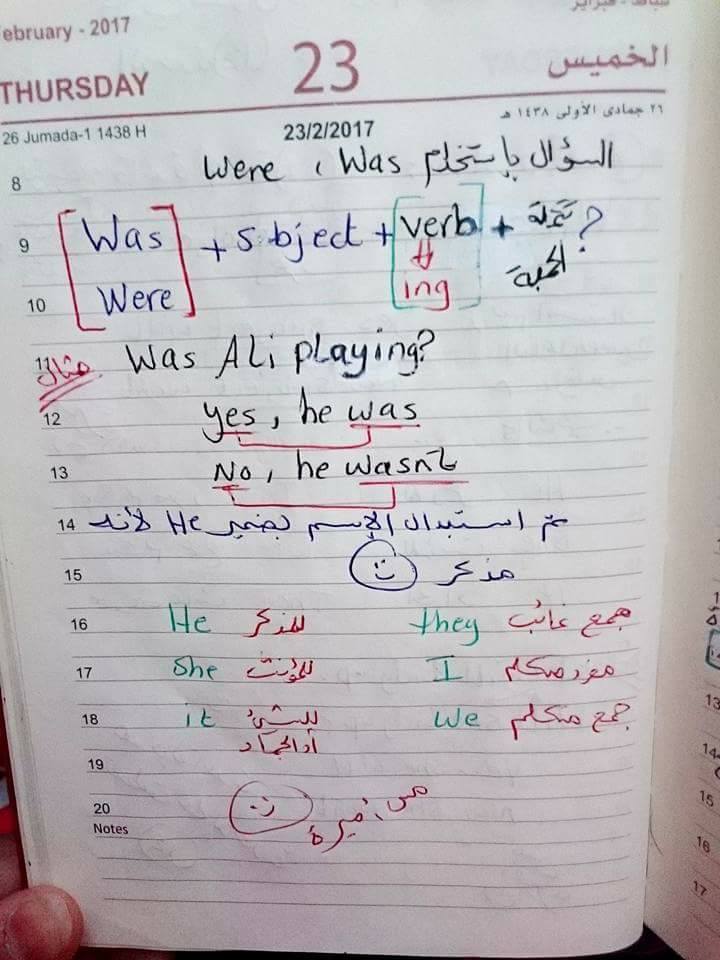 ebruary - 2017
THURSDAY
23
الخميس
26 Jumada-1 1438 H
23/2/2017
٢٦ جمادى الأولى ١٤٣٨ هـ
8
السؤال بإستخدام Was ، Were
9
Was
Were
+ subject + verb + تكملة الجملة ?
⇓
ing
10
11
مثال
Was Ali playing?
12
yes, he was
13
No, he wasn't
14
تم استبدال الإسم بضمير He لأنه
15
مذكر
16
He للمذكر they جمع غائب
17
She للمؤنث I مفرد متكلم
18
it للشئ we جمع متكلم
أو الجماد
19
20
مس أميرة
Notes
13
14
15
16
17